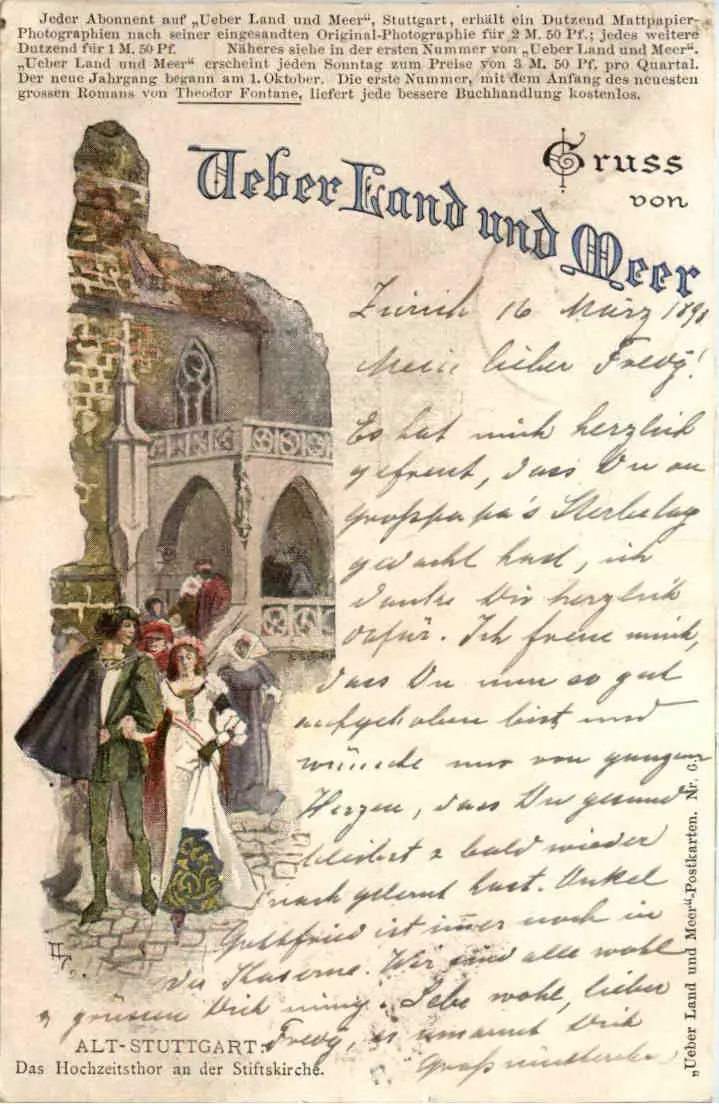 Jeder Abonnent auf „Ueber Land und Meer“, Stuttgart, erhält ein Dutzend Mattpapier-
Photographien nach seiner eingesandten Original-Photographie für 2 M. 50 Pf.; jedes weitere
Dutzend für 1 M. 50 Pf. Näheres siehe in der ersten Nummer von „Ueber Land und Meer“.
„Ueber Land und Meer“ erscheint jeden Sonntag zum Preise von 3 M. 50 Pf. pro Quartal.
Der neue Jahrgang begann am 1. Oktober. Die erste Nummer, mit dem Anfang des neuesten
grossen Romans von Theodor Fontane, liefert jede bessere Buchhandlung kostenlos.
Gruss
von
Ueber Land und Meer
Zürich 16 März 189
Mein lieber Fredy!
Es hat mich herzlich
gefreut, dass Du an
Grosspapa's Sterbetag
gedacht hast, ich
danke Dir herzlich
dafür. Ich freue mich,
dass Du nun so gut
aufgehoben bist und
wünsche nur von ganzem
Herzen, dass Du gesund
bleibst & bald wieder
nach gelernt hast. Onkel
Gottfried ist immer noch in
der Kaserne. Wir sind alle wohl
& grüssen Dich innig. Lebe wohl, lieber
Fredy, es umarmt Dich
Grossmütterchen
ALT-STUTTGART:
Das Hochzeitsthor an der Stiftskirche.
„Ueber Land und Meer“-Postkarten. Nr. 6.